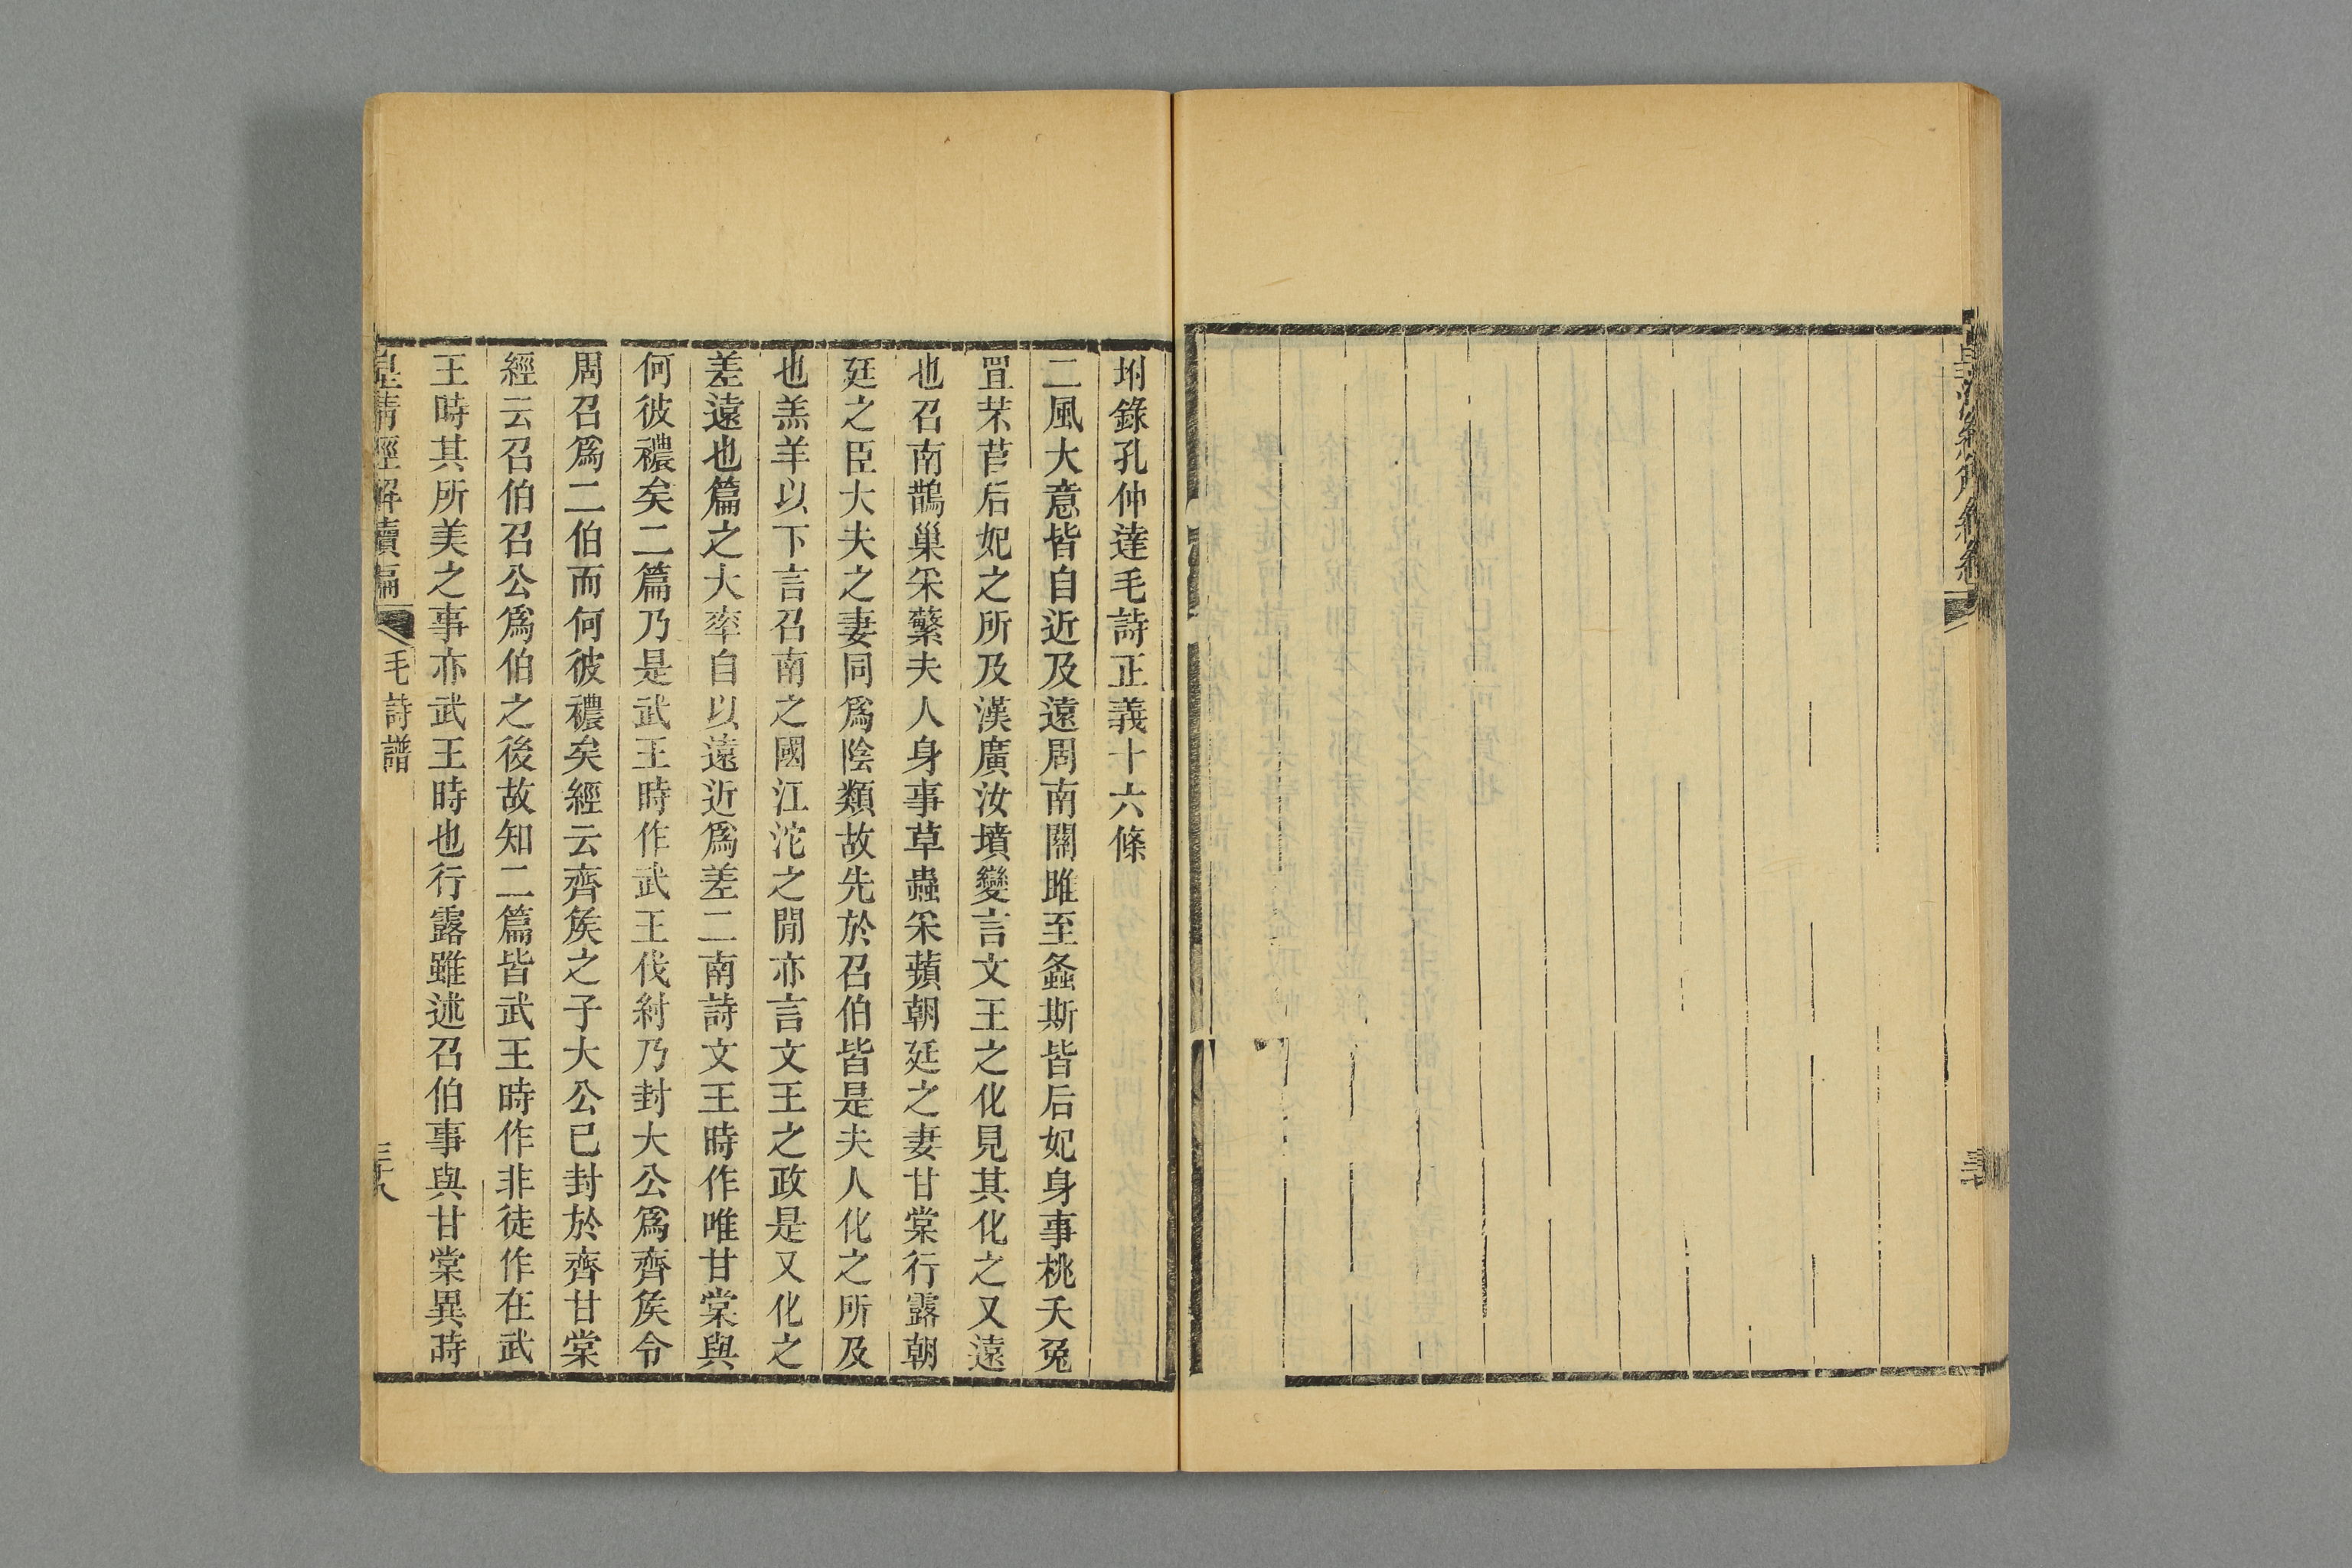 坿錄孔仲達毛詩正義十六條
二風大意皆自近及遠周南關雎至螽斯皆后妃身事桃夭兔
罝芣苢后妃之所及漢廣汝墳變言文王之化見其化之又遠
也召南鵲巢采蘩夫人身事草蟲采蘋朝廷之妻甘棠行露朝
廷之臣大夫之妻同爲陰類故先於召伯皆是夫人化之所及
也羔羊以下言召南之國江沱之閒亦言文王之政是又化之
差遠也篇之大率自以遠近爲差二南詩文王時作唯甘棠與
何彼襛矣二篇乃是武王時作武王伐紂乃封大公爲齊矦令
周召爲二伯而何彼襛矣經云齊矦之子大公已封於齊甘棠
經云召伯召公爲伯之後故知二篇皆武王時作非徒作在武
王時其所美之事亦武王時也行露雖述召伯事與甘棠異時
皇清經解續編 毛詩譜 三十八